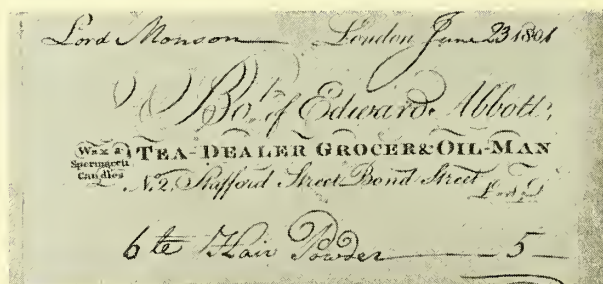 Lord Monson London June 23 1801
Bot. of Edward Abbott,
Wax &
Spermaceti
Candles
TEA-DEALER GROCER & OIL-MAN
No. 2, Stafford Street Bond Street £ s D
6 lb Hair Powder 5